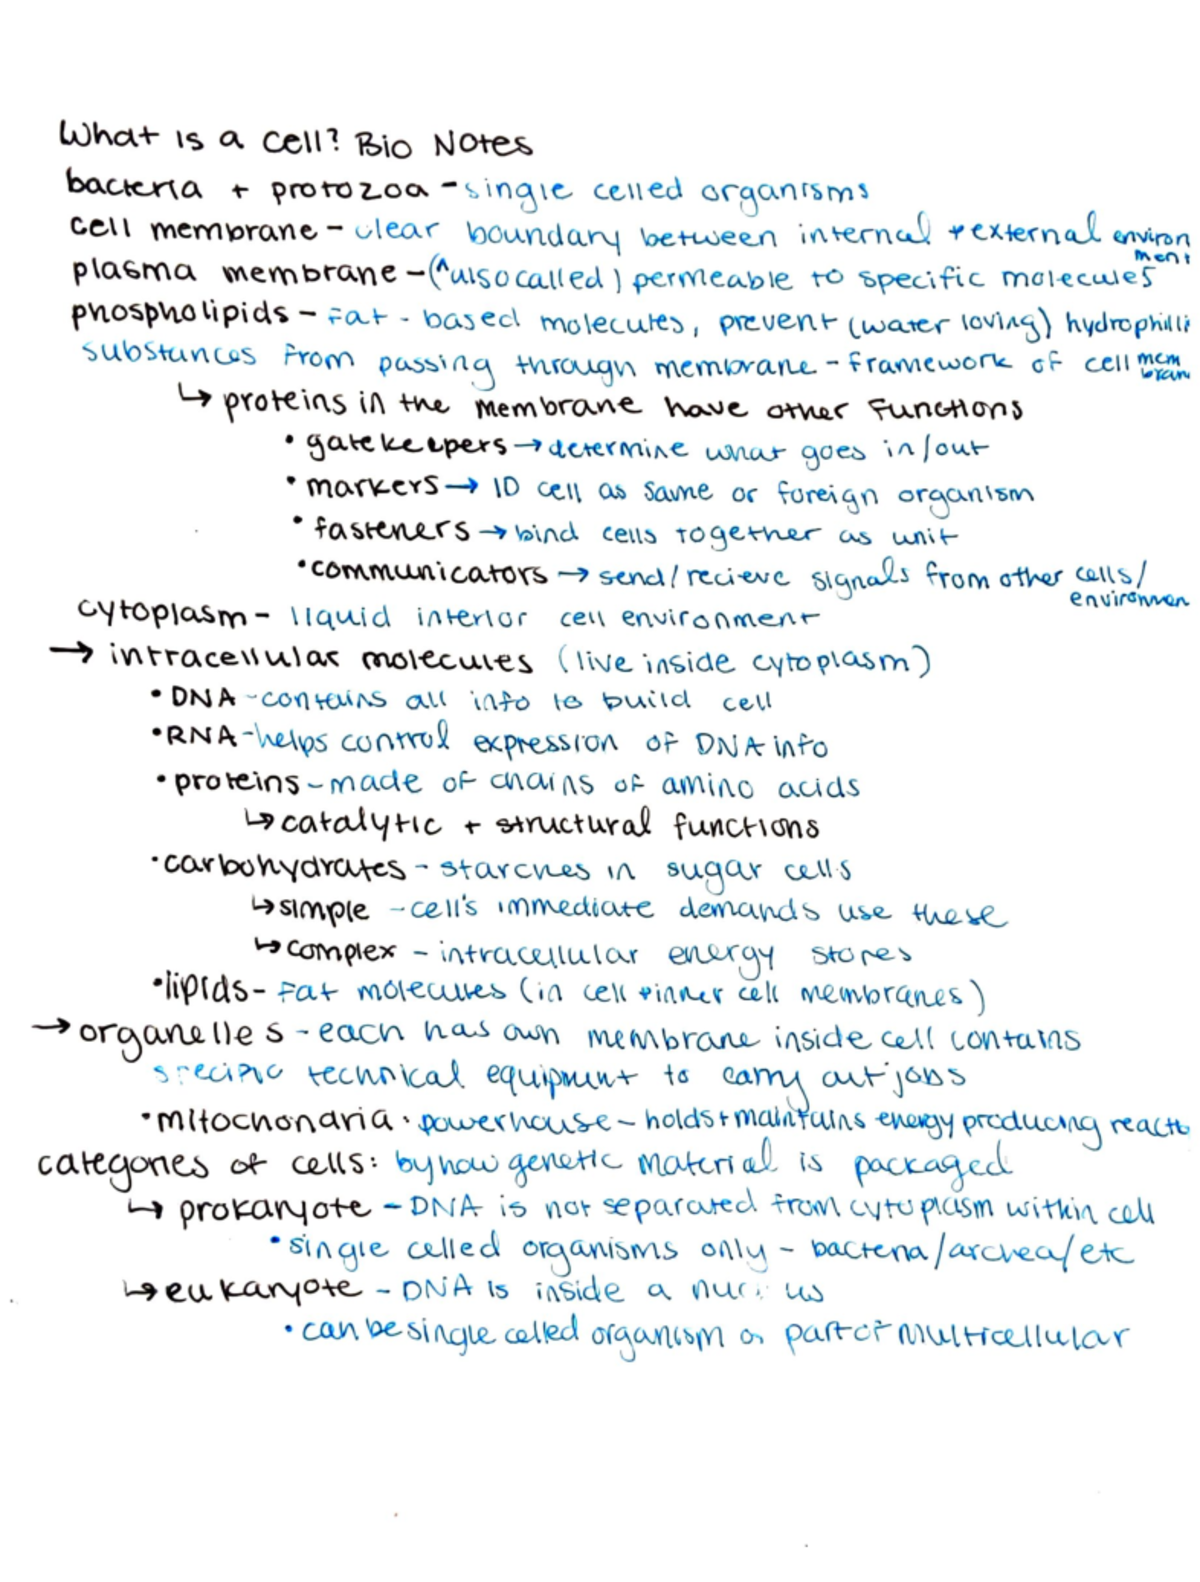 What is a cell? Bio Notes
bacteria + protozoa - single celled organisms
cell membrane - clear boundary between internal + external environ
ment
plasma membrane - (^also called) permeable to specific molecules
phospholipids - fat - based molecules, prevent (water loving) hydrophilli
substances from passing through membrane - framework of cell mem
bran
↳ proteins in the membrane have other functions
• gatekeepers → determine what goes in/out
• markers → ID cell as same or foreign organism
• fasteners → bind cells together as unit
• communicators → send/recieve signals from other cells/
environmen
cytoplasm - liquid interior cell environment
→ intracellular molecules (live inside cytoplasm)
• DNA - contains all info to build cell
• RNA - helps control expression of DNA info
• proteins - made of chains of amino acids
↳ catalytic + structural functions
• carbohydrates - starches in sugar cells
↳ simple - cell's immediate demands use these
↳ complex - intracellular energy stores
• lipids - fat molecules (in cell + inner cell membranes)
→ organelles - each has own membrane inside cell contains
specific technical equipment to carry out jobs
• mitochondria: powerhouse - holds + maintains energy producing reactio
categories of cells: by how genetic material is packaged
↳ prokaryote - DNA is not separated from cytoplasm within cell
• single celled organisms only - bacteria/archea/etc
↳ eukaryote - DNA is inside a nucleus
• can be single celled organism or part of multicellular